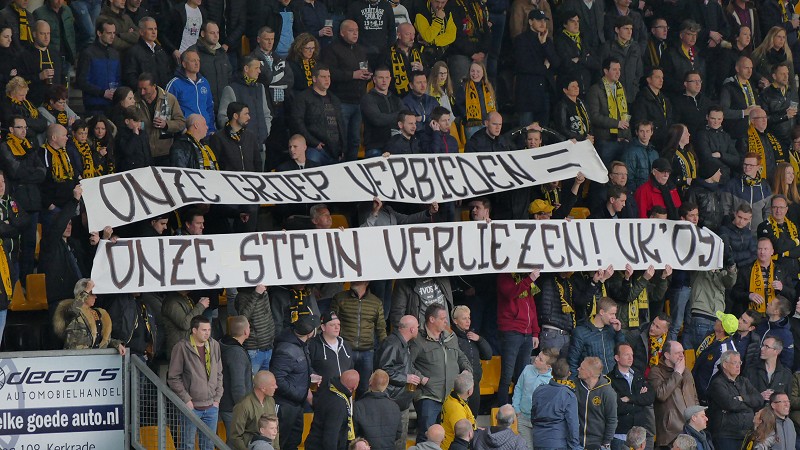 ONZE GROEP VERBIEDEN =
ONZE STEUN VERLIEZEN! VK'09
decars
AUTOMOBIELHANDEL
elke goede auto.nl
109, Kerkrade